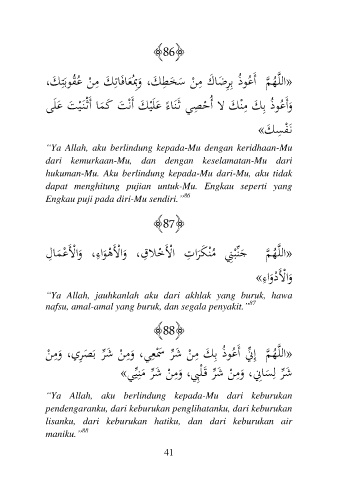 ﴾86﴿
«اللَّهُمَّ أَعُوذُ بِرِضَاكَ مِنْ سَخَطِكَ، وَبِمُعَافَاتِكَ مِنْ عُقُوبَتِكَ،
وَأَعُوذُ بِكَ مِنْكَ لا أُحْصِي ثَنَاءً عَلَيْكَ أَنْتَ كَمَا أَثْنَيْتَ عَلَى
نَفْسِكَ»
“Ya Allah, aku berlindung kepada-Mu dengan keridhaan-Mu
dari kemurkaan-Mu, dan dengan keselamatan-Mu dari
hukuman-Mu. Aku berlindung kepada-Mu dari-Mu, aku tidak
dapat menghitung pujian untuk-Mu. Engkau seperti yang
Engkau puji pada diri-Mu sendiri.”86
﴾87﴿
«اللَّهُمَّ جَنِّبْنِي مُنْكَرَاتِ الْأَخْلاقِ، وَالْأَهْوَاءِ، وَالْأَعْمَالِ
وَالْأَدْوَاءِ»
“Ya Allah, jauhkanlah aku dari akhlak yang buruk, hawa
nafsu, amal-amal yang buruk, dan segala penyakit.”87
﴾88﴿
«اللَّهُمَّ إِنِّي أَعُوذُ بِكَ مِنْ شَرِّ سَمْعِي، وَمِنْ شَرِّ بَصَرِي، وَمِنْ
شَرِّ لِسَانِي، وَمِنْ شَرِّ قَلْبِي، وَمِنْ شَرِّ مَنِيِّي»
“Ya Allah, aku berlindung kepada-Mu dari keburukan
pendengaranku, dari keburukan penglihatanku, dari keburukan
lisanku, dari keburukan hatiku, dan dari keburukan air
maniku.”88
41